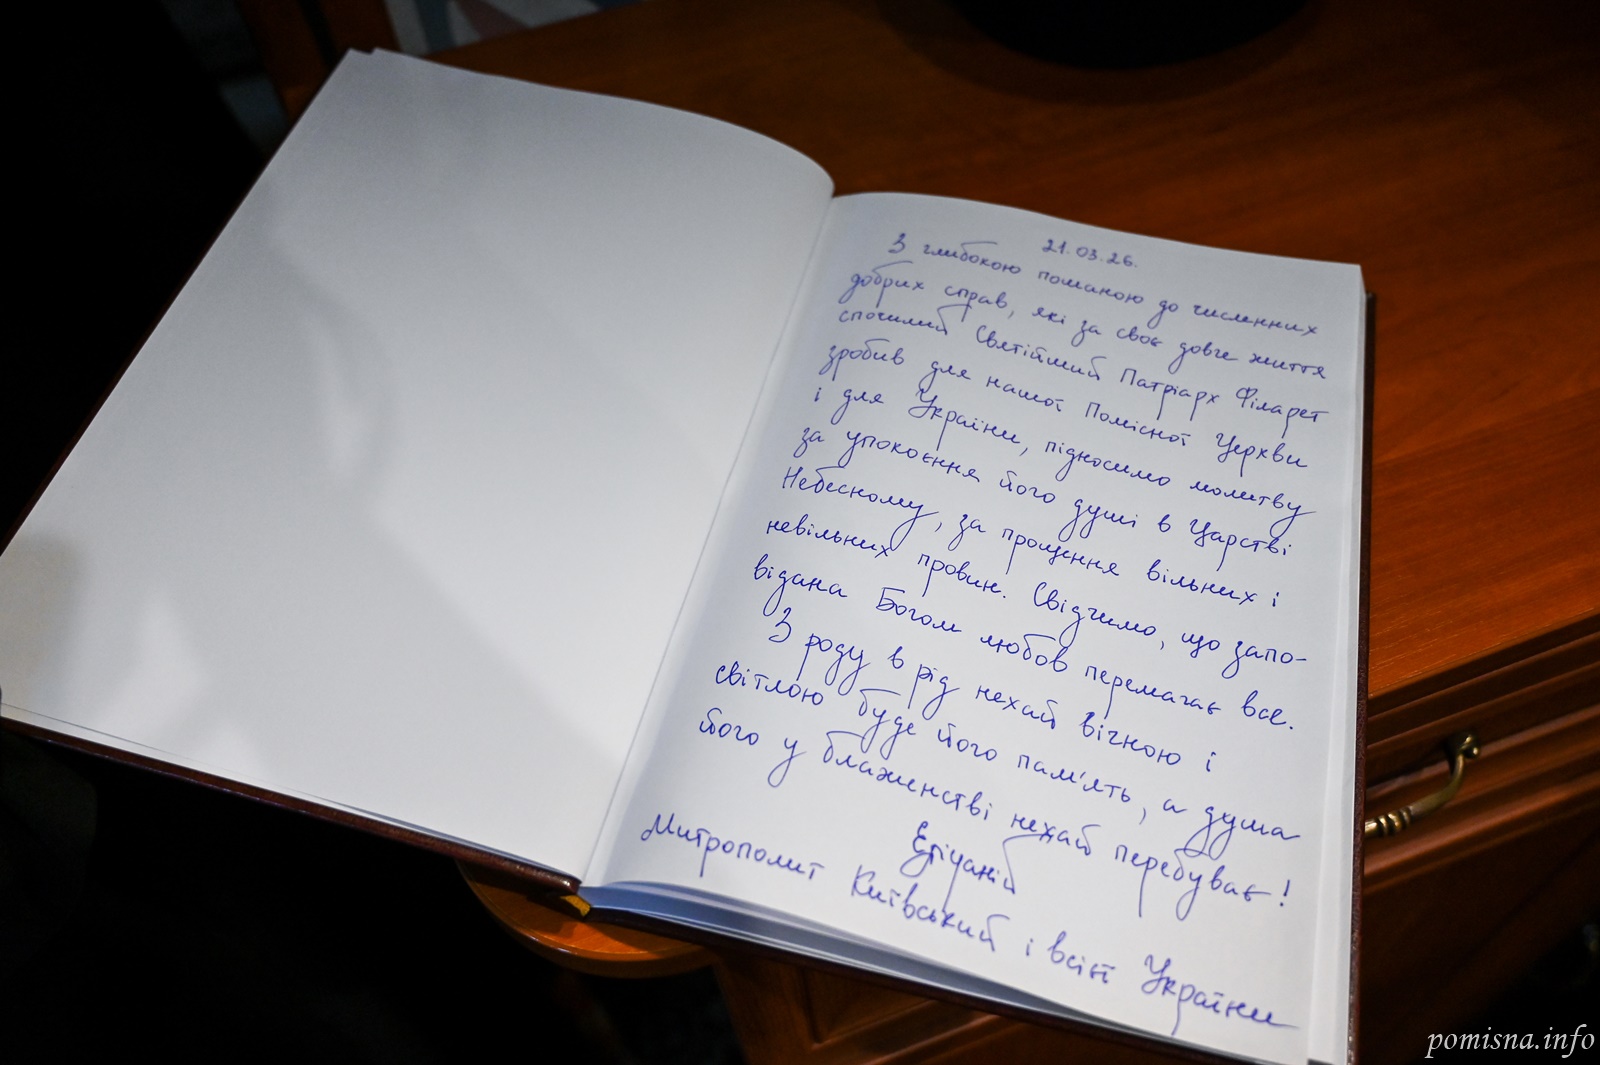 21.03.26.
З глибокою пошаною до численних
добрих справ, які за своє довге життя
спочилий Святійший Патріарх Філарет
зробив для нашої Помісної Церкви
і для України, підносимо молитву
за упокоєння його душі в Царстві
Небесному, за прощення вільних і
невільних провин. Свідчимо, що запо-
відана Богом любов перемагає все.
З роду в рід нехай вічною і
світлою буде його пам'ять, а душа
його у блаженстві нехай перебуває!
Епіфаній
Митрополит Київський і всієї України
pomisna.info